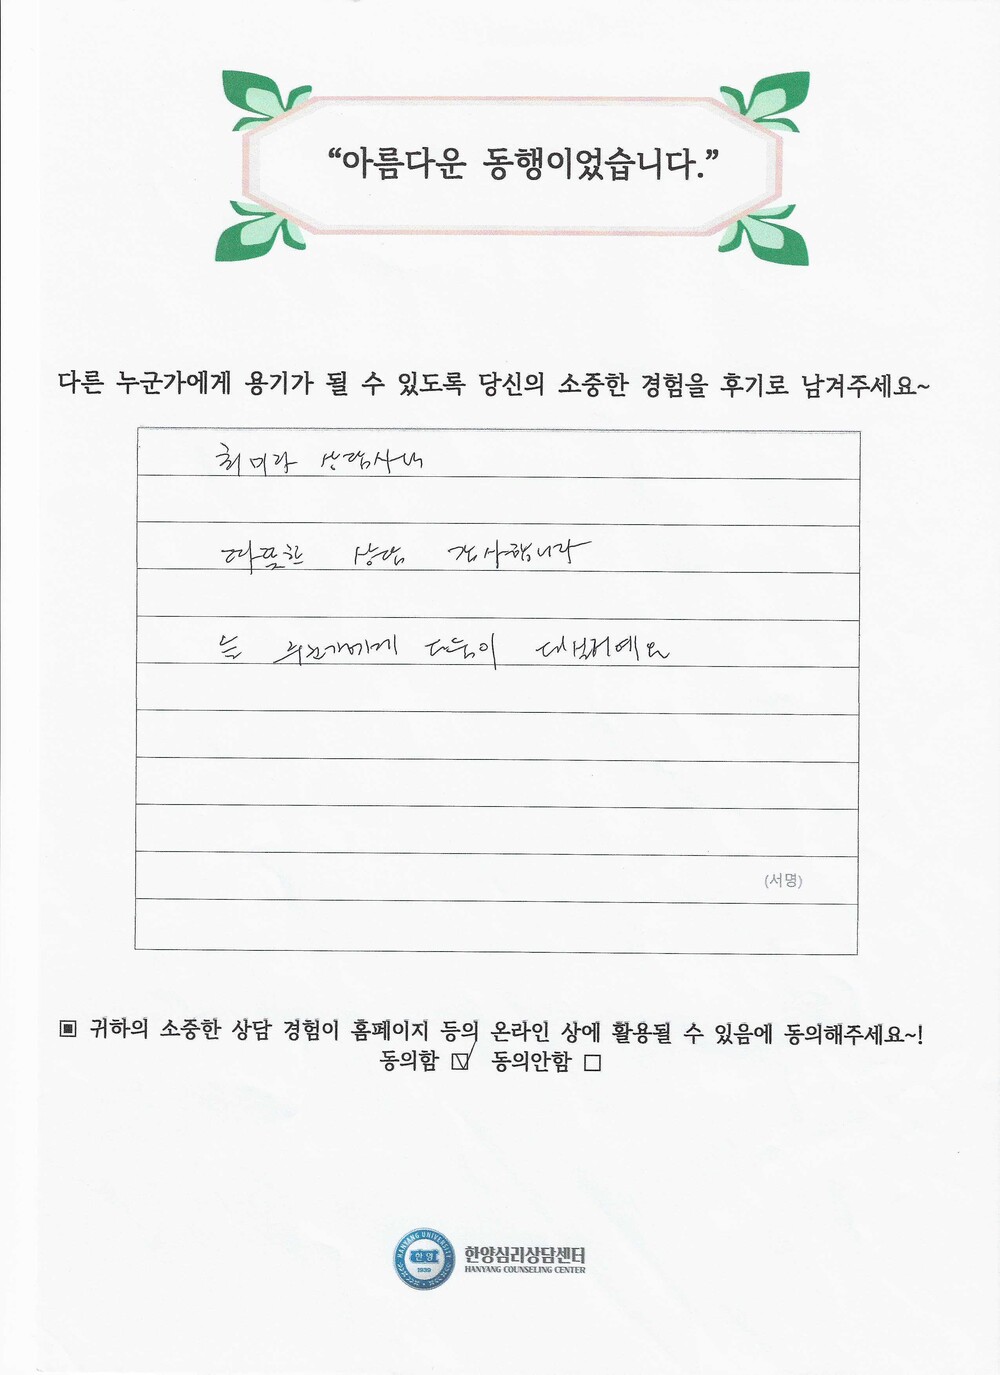 “아름다운 동행이었습니다.”
다른 누군가에게 용기가 될 수 있도록 당신의 소중한 경험을 후기로 남겨주세요~
최미라 상담사님
따뜻한 상담 감사합니다
늘 누군가에게
(서명)
▣ 귀하의 소중한 상담 경험이 홈페이지 등의 온라인 상에 활용될 수 있음에 동의해주세요~!
동의함 ☑ 동의안함 □
HANYANG UNIVERSITY
한양
1939
한양심리상담센터
HANYANG COUNSELING CENTER